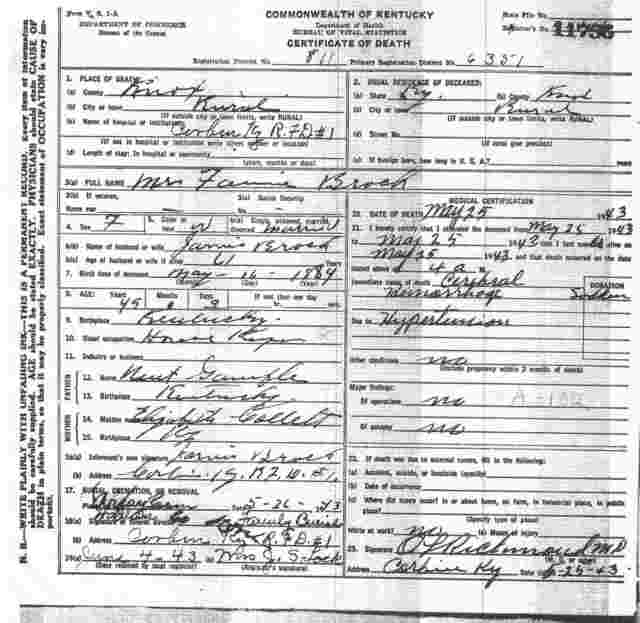 Form V. S. 1-A
DEPARTMENT OF COMMERCE
Bureau of the Census
COMMONWEALTH OF KENTUCKY
Department of Health
BUREAU OF VITAL STATISTICS
CERTIFICATE OF DEATH
State File No.
Registrar's No. 11736
Registration District No. 811
Primary Registration District No. 6351
N. B.—WRITE PLAINLY WITH UNFADING INK—THIS IS A PERMANENT RECORD. Every item of information
should be carefully supplied. AGE should be stated EXACTLY. PHYSICIANS should state CAUSE OF
DEATH in plain terms, so that it may be properly classified. Exact statement of OCCUPATION is very im-
portant.
1. PLACE OF DEATH:
(a) County Knox
(b) City or town Rural
(If outside city or town limits, write RURAL)
(c) Name of hospital or institution: Corbin Ky R.F.D #1
(If not in hospital or institution write street number or location)
(d) Length of stay: In hospital or community
(years, months or days)
2. USUAL RESIDENCE OF DECEASED:
(a) State Ky. (b) County Knox
(c) City or town Rural
(If outside city or town limits, write RURAL)
(d) Street No.
(If rural give precinct)
(e) If foreign born, how long in U. S. A.? years
3(a) FULL NAME Mrs Fannie Brock
3(b) If veteran,
Name war
3(c) Social Security
No.
4. Sex F
5. Color or race W
6(a) Single, widowed, married, divorced married
6(b) Name of husband or wife Jarvis Brock
6(c) Age of husband or wife if alive 61 Years
7. Birth date of deceased May - 16 - 1884
(Month) (Day) (Year)
8. AGE: Years Months Days If less than one day
hr. min.
9. Birthplace Kentucky.
10. Usual occupation House Keeper
11. Industry or business
FATHER
12. Name Newt Gamble
13. Birthplace Kentucky
MOTHER
14. Maiden name Elizabeth Collett
15. Birthplace Ky
16(a) Informant's own signature Jarvis Brock
(b) Address Corbin Ky. R.F.D. #1.
17. BURIAL, CREMATION, OR REMOVAL
Place Date 5-26-1943
18(a) Signature of funeral director Family Burial
(b) Address Corbin Ky R.F.D. #1
19(a) June 4-43 (b) Mrs J. S. Lock
(Date received by local registrar) (Registrar's signature)
MEDICAL CERTIFICATION
20. DATE OF DEATH May 25 1943
21. I hereby certify that I attended the deceased from May 25 1943
to May 25 1943 that I last saw alive on
May 25 1943, and that death occurred on the date
stated above at 4 a m.
Immediate cause of death Cerebral
Hemorrhage
DURATION
Sudden
Due to Hypertension
Other conditions no
(Include pregnancy within 3 months of death)
Major findings:
Of operations no
Of autopsy no
22. If death was due to external causes, fill in the following:
(a) Accident, suicide, or homicide (specify)
(b) Date of occurrence
(c) Where did injury occur? in or about home, on farm, in industrial place, in public
place?
(Specify type of place)
While at work? no (e) Means of injury
23. Signature O L Richmond M.D.
Address Corbin Ky Date 5-25-43